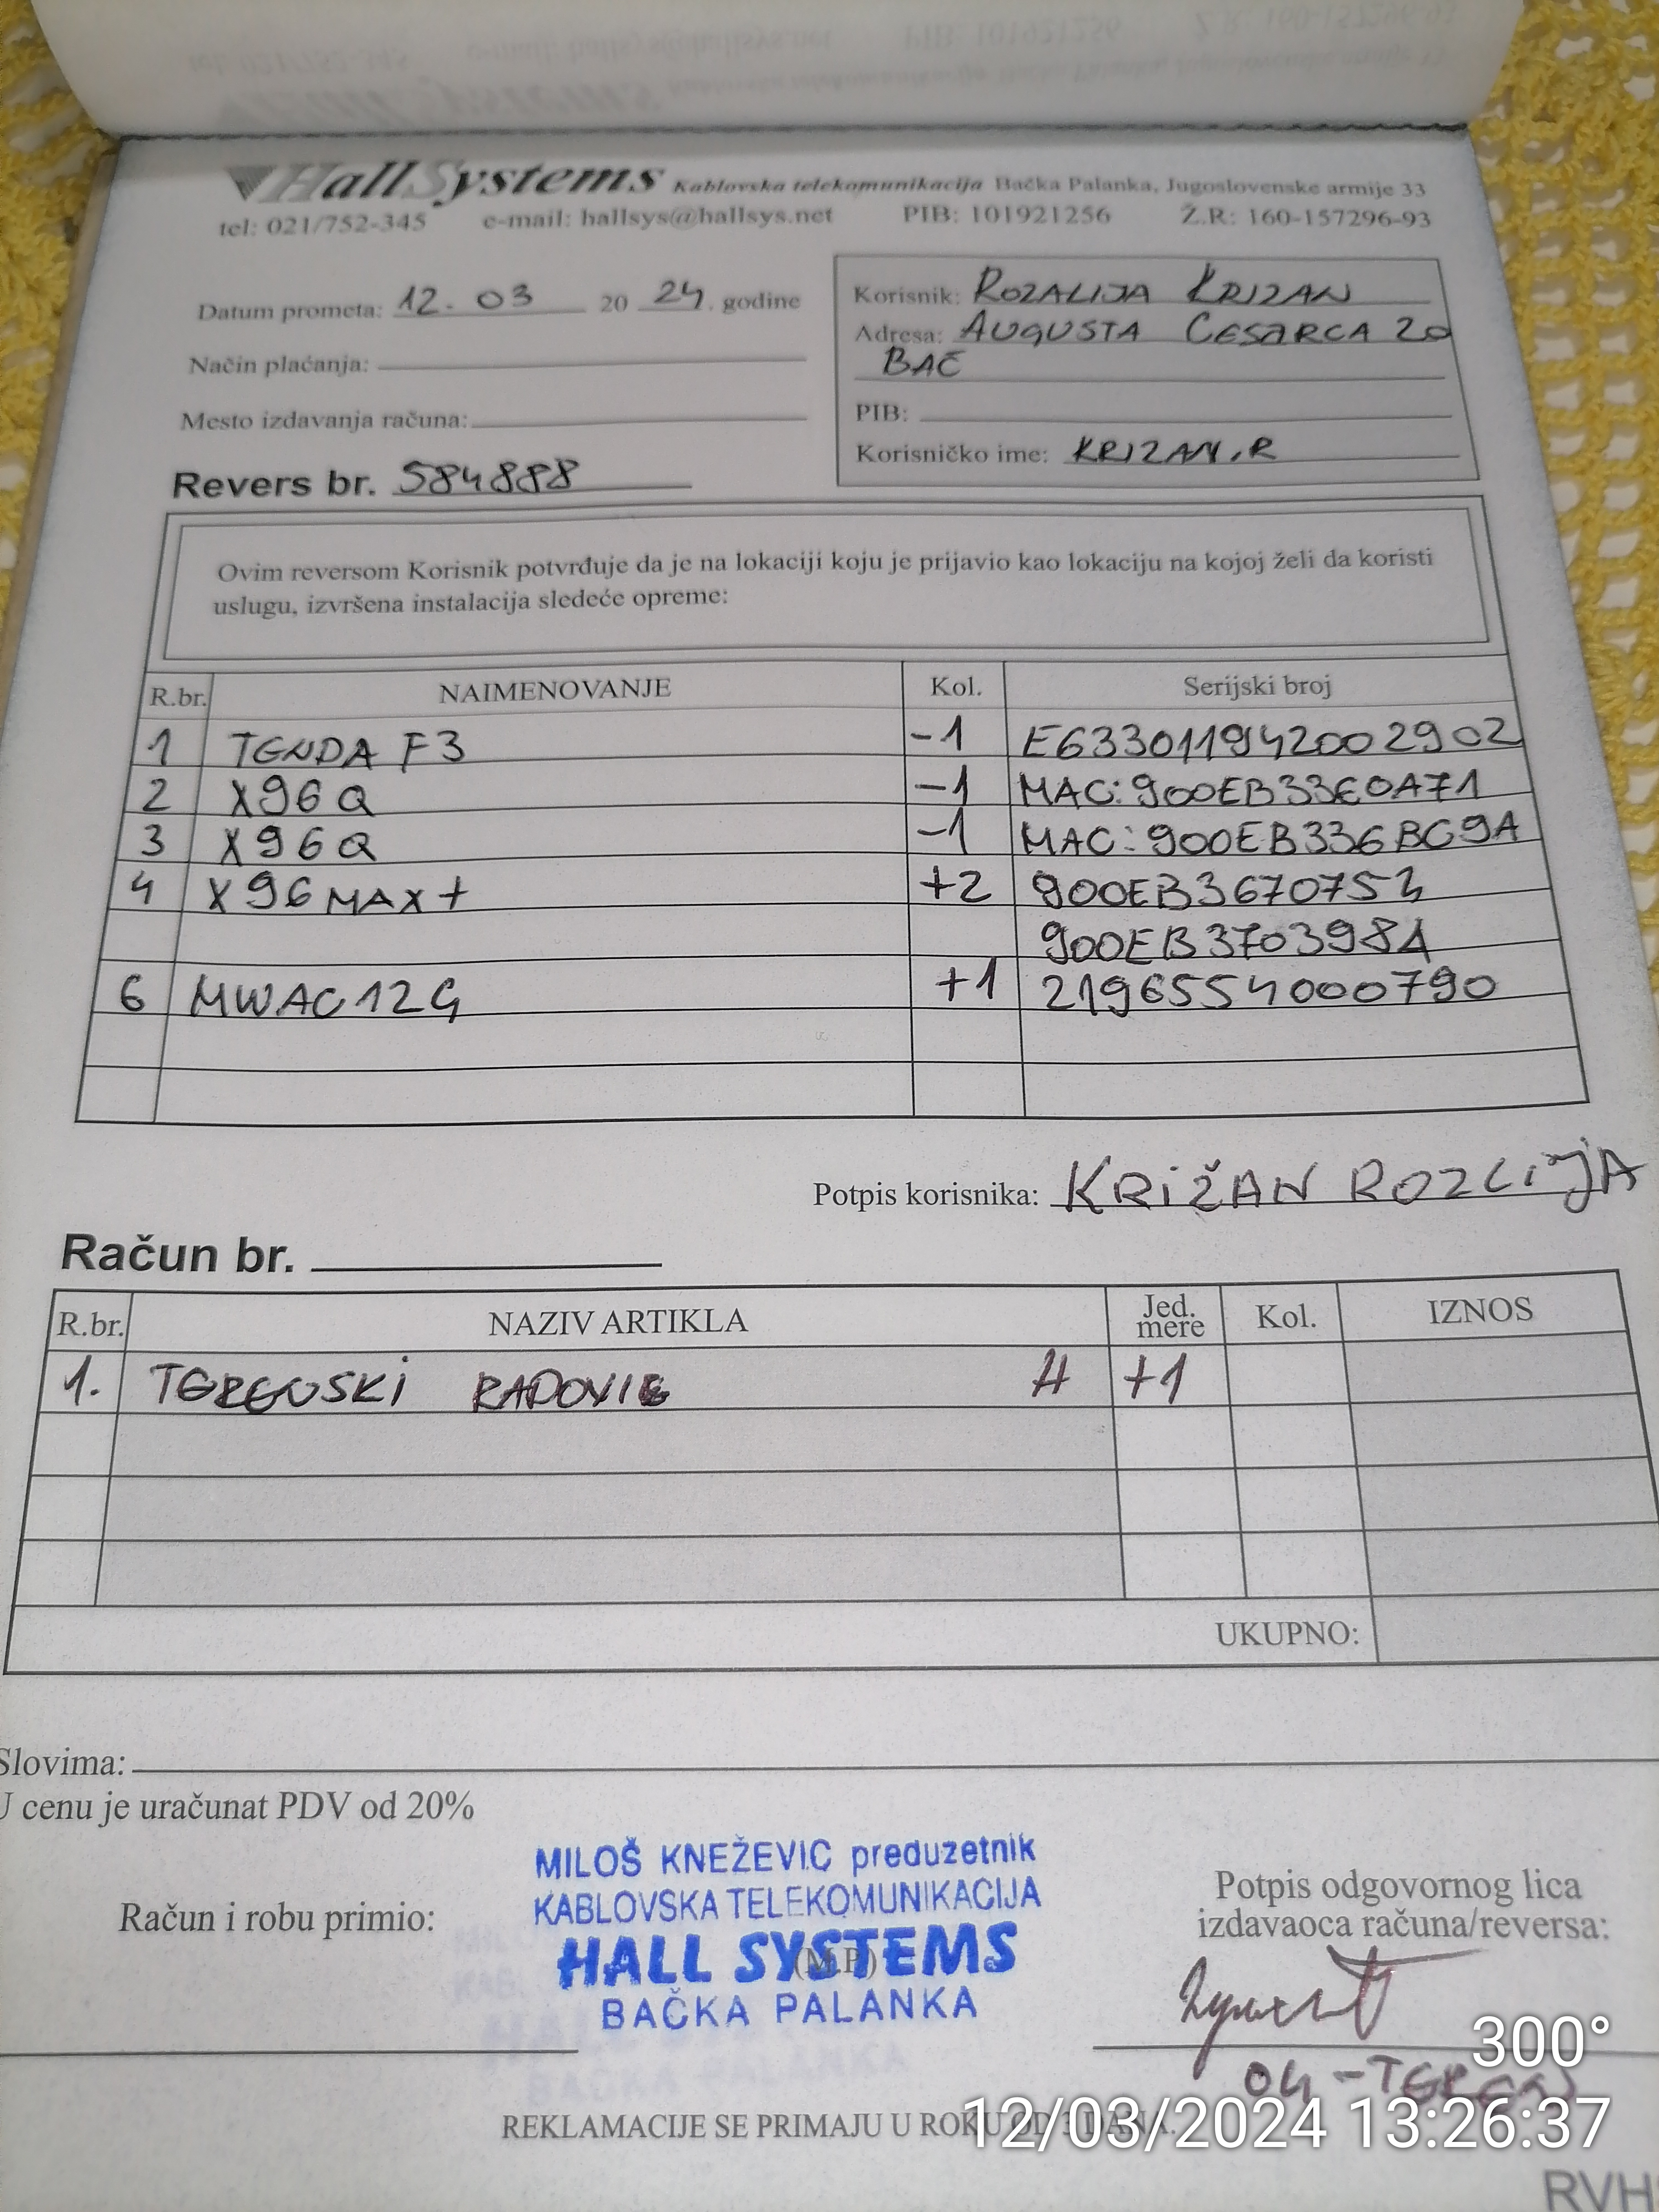 HallSystems Kablovska telekomunikacija Bačka Palanka, Jugoslovenske armije 33
tel: 021/752-345 e-mail: hallsys@hallsys.net PIB: 101921256 Ž.R: 160-157296-93
Datum prometa: 12. 03 20 24. godine
Način plaćanja:
Mesto izdavanja računa:
Revers br. 584888
Korisnik: ROZALIJA KRIZAN
Adresa: AUGUSTA CESARCA 20
BAČ
PIB:
Korisničko ime: KRIZAN.R
Ovim reversom Korisnik potvrđuje da je na lokaciji koju je prijavio kao lokaciju na kojoj želi da koristi
uslugu, izvršena instalacija sledeće opreme:
R.br. NAIMENOVANJE Kol. Serijski broj
1 TENDA F3 -1 E633011942002902
2 X96Q -1 MAC: 900EB33E0A71
3 X96Q -1 MAC: 900EB336BC9A
4 X96 MAX+ +2 900EB3670753
900EB3703984
6 MWAC12G +1 2196554000790
Potpis korisnika: KRIŽAN ROZLIJA
Račun br.
R.br. NAZIV ARTIKLA Jed. mere Kol. IZNOS
1. TERENSKI RADOVI H +1
UKUPNO:
Slovima:
U cenu je uračunat PDV od 20%
MILOŠ KNEŽEVIC preduzetnik
KABLOVSKA TELEKOMUNIKACIJA
HALL SYSTEMS
(M.P.)
BAČKA PALANKA
Račun i robu primio:
Potpis odgovornog lica
izdavaoca računa/reversa:
300°
04-TEREN
REKLAMACIJE SE PRIMAJU U ROKU OD 3 DANA.
12/03/2024 13:26:37
RVH